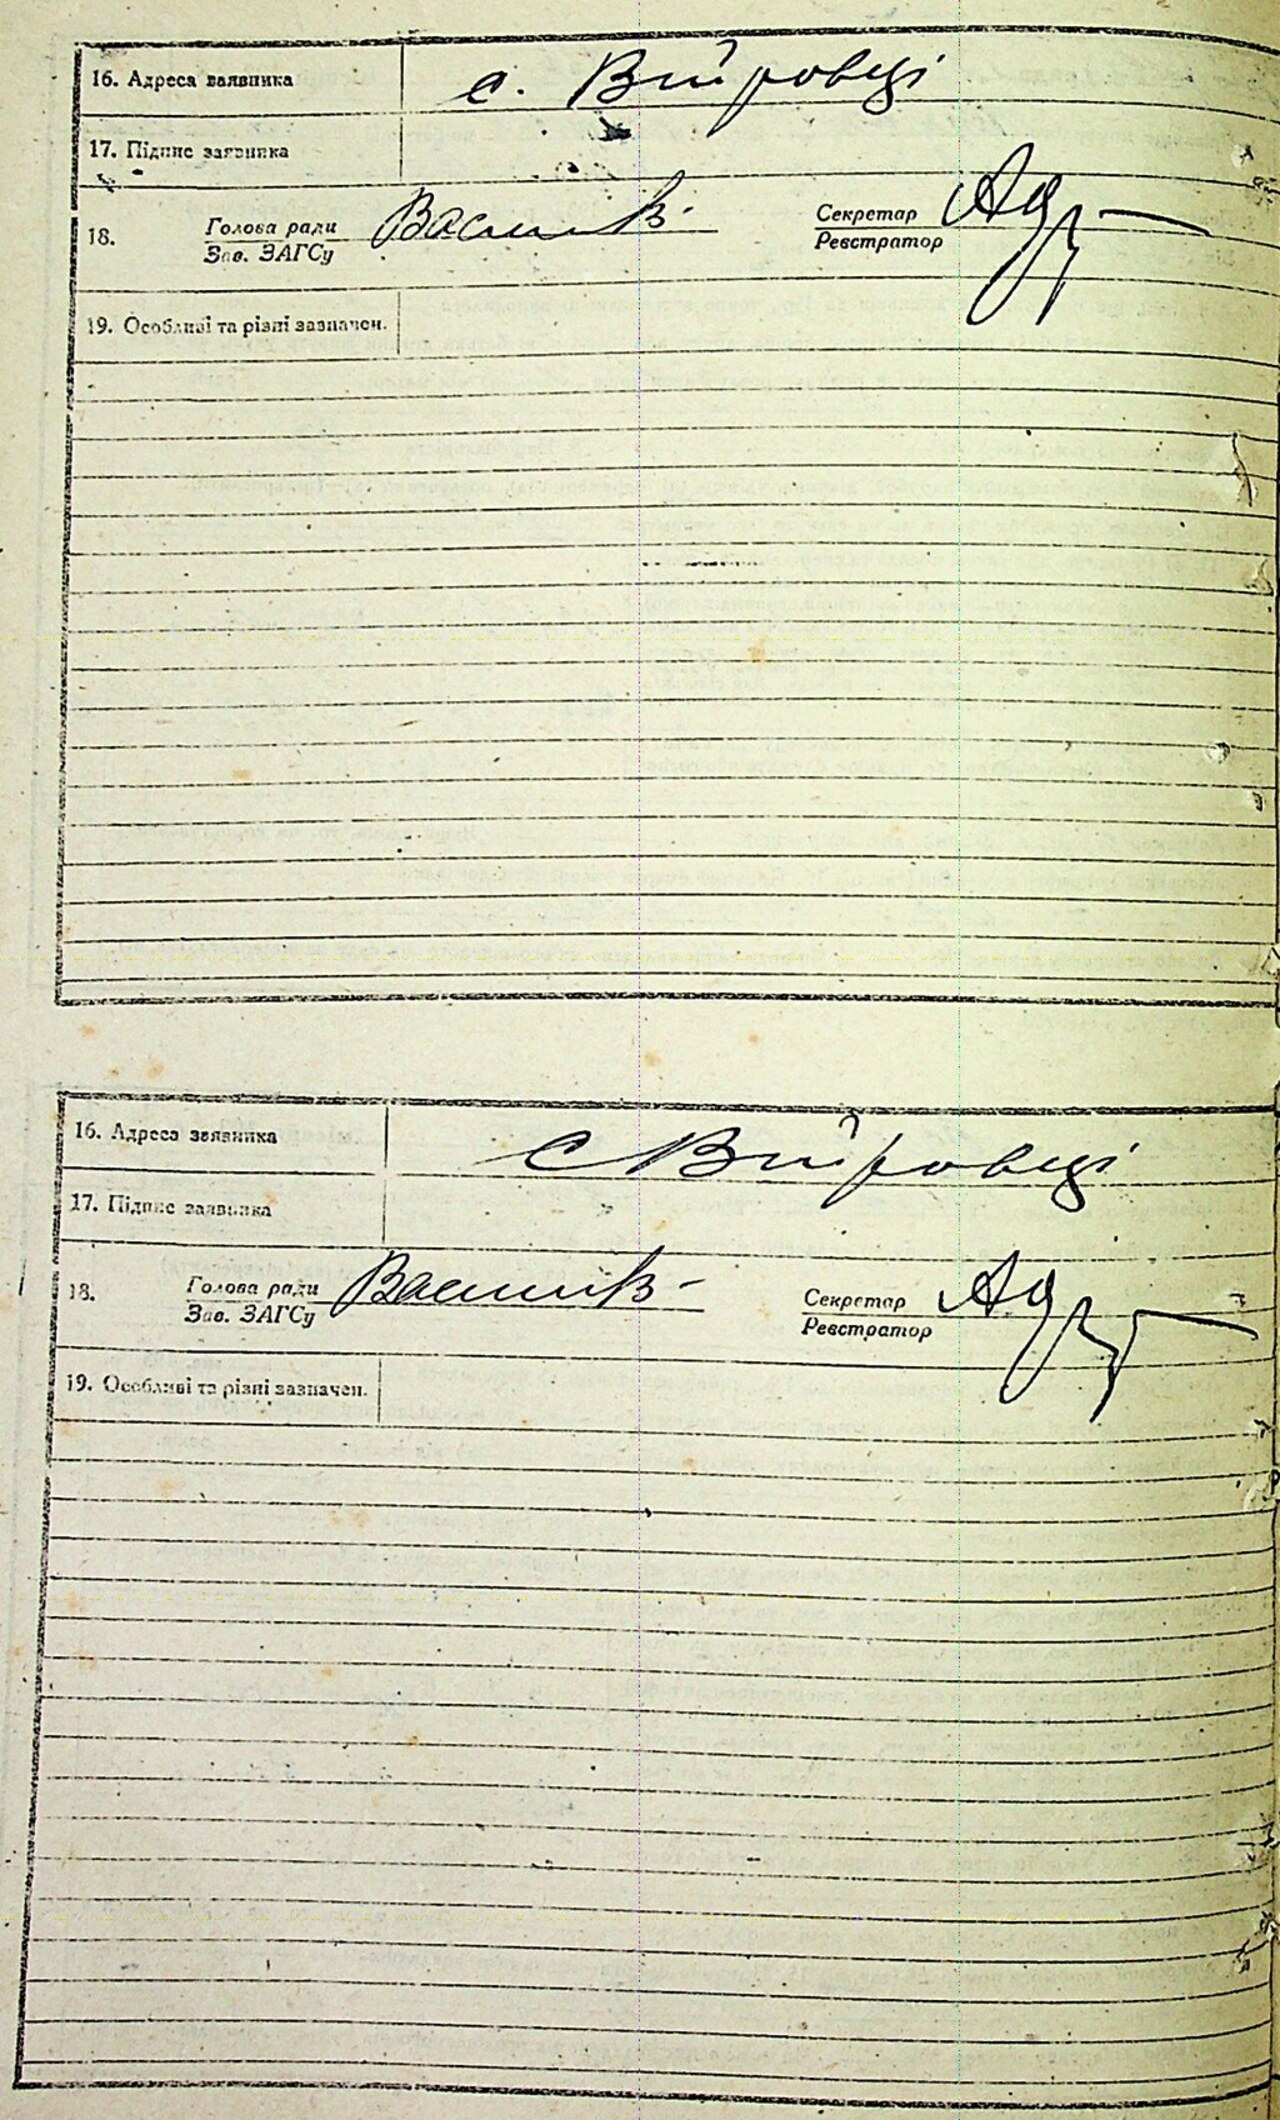 16. Адреса заявника с. Війровці
17. Підпис заявника
18. Голова ради Секретар
Зав. ЗАГСу Реєстратор
19. Особливі та різні зазначен.
16. Адреса заявника с Війровці
17. Підпис заявника
18. Голова ради Секретар
Зав. ЗАГСу Реєстратор
19. Особливі та різні зазначен.